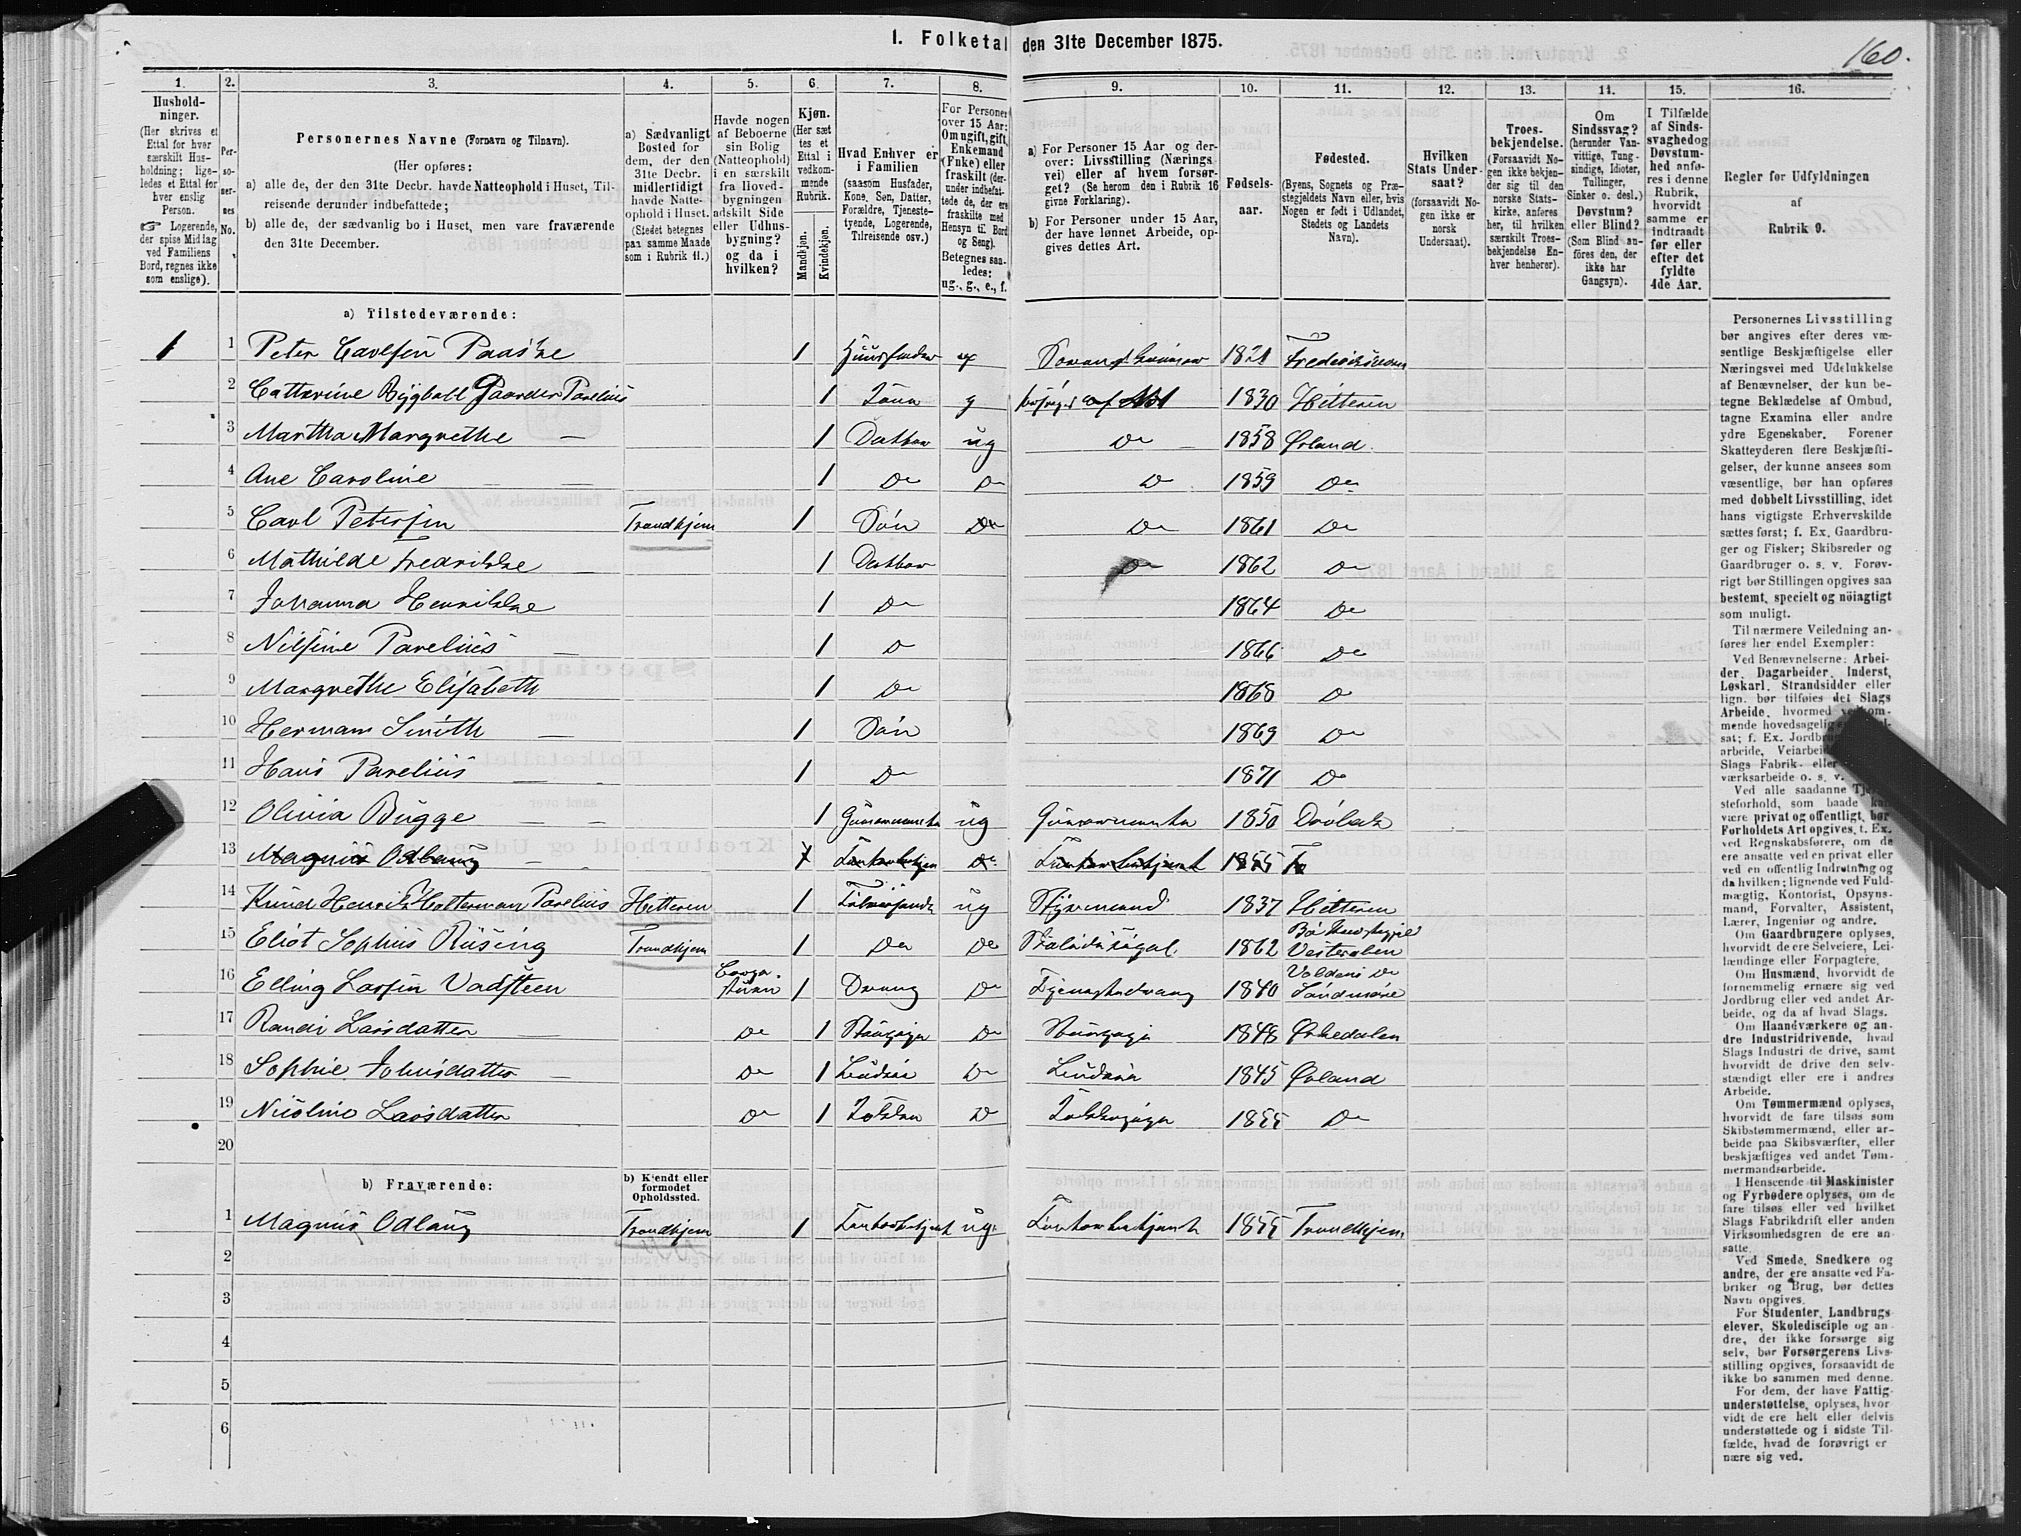 1. Folketal den 31te December 1875.
160.
1.
2.
3.
4.
5.
6.
7.
8.
9.
10.
11.
12.
13.
14.
15.
16.
Hushold-
ninger.
(Her skrives et
Ettal for hver
særskilt Hus-
holdning; lige-
ledes et Ettal for
hver enslig
Person.
☞ Logerende,
der spise Middag
ved Familiens
Bord, regnes ikke
som enslige).
Per-
so-
ner-
nes
No.
Personernes Navne (Fornavn og Tilnavn).
(Her opføres:
a) alle de, der den 31te Decbr. havde Natteophold i Huset, Til-
reisende derunder indbefattede;
b) alle de, der sædvanlig bo i Huset, men vare fraværende
den 31te December.
a) Sædvanligt
Bosted for
dem, der den
31te Decbr.
midlertidigt
havde Natte-
ophold i Huset.
(Stedet betegnes
paa samme Maade
som i Rubrik 11.)
Havde nogen
af Beboerne
sin Bolig
(Natteophold)
i en særskilt
fra Hoved-
bygningen
adskilt Side
eller Udhus-
bygning?
og da i
hvilken?
Kjøn.
(Her sæt
tes et
Ettal i
vedkom-
mende
Rubrik.
Mandkjøn.
Kvindekjøn.
Hvad Enhver er
i Familien
(saasom Husfader,
Kone, Søn, Datter,
Forældre, Tjeneste-
tyende, Logerende,
Tilreisende osv.)
For Personer
over 15 Aar:
Om ugift, gift,
Enkemand
(Enke) eller
fraskilt (der-
under indbefat-
tede de, der ere
fraskilte med
Hensyn til Bord
og Seng).
Betegnes saa-
ledes:
ug., g., e., f.
a) For Personer 15 Aar og der-
over: Livsstilling (Nærings
vei) eller af hvem forsør-
get? (Se herom den i Rubrik 16
givne Forklaring).
b) For Personer under 15 Aar,
der have lønnet Arbeide, op-
gives dettes Art.
Fødsels-
aar.
Fødested.
(Byens, Sognets og Præ-
stegjeldets Navn eller, hvis
Nogen er født i Udlandet,
Stedets og Landets
Navn).
Hvilken
Stats Under-
saat?
(forsaavidt No-
gen ikke er
norsk
Undersaat).
Troes-
bekjendelse.
(Forsaavidt No-
gen ikke bekjen-
der sig til den
norske Stats-
kirke, anføres
her, til hvilken
særskilt Troes-
bekjendelse En-
hver henhører).
Om
Sindssvag?
(herunder Van-
vittige, Tung-
sindige, Idioter,
Tullinger,
Sinker o. desl.)
Døvstum?
eller Blind?
(Som Blind an-
føres den, der
ikke har
Gangsyn).
I Tilfælde
af Sinds-
svaghed og
Døvstum-
hed anfø-
res i denne
Rubrik,
hvorvidt
samme er
indtraadt
før eller
efter det
fyldte
4de Aar.
Regler for Udfyldningen
af
Rubrik 9.
a) Tilstedeværende:
1 1 Peter Carlsen Paaske 1 Huusfader g 1821
2 Catharine Paredes Parelius 1 Kone g forsørges af 1830 Hitteren
3 Martha Margrethe — 1 Datter ug Do 1858 Ørland.
4 Ane Caroline 1 Do Do Do 1859 Do
5 Carl Petersen Trondhjem 1 Søn Do Do 1861 Do
6 Mathilde Fredrikke — 1 Datter Do 1862 Do
7 Johanna Henrikke 1 Do 1864 Do
8 Nilsine Parelius — 1 Do 1866 Do
9 Margrethe Elisabeth 1 Do 1868 Do
10 Herman Smith — 1 Søn 1869 Do
11 Hans Parelius — 1 Do 1871 Do
12 Olivia Bugge — 1 Guvernante ug Guvernante 1850
13 Magnus Odlaug — 1 Kontorbetjent Do Kontorbetjent 1855
14 Knud Henrik Holterman Parelius Hitteren 1 Tilreisende ug Styrmand 1837 Hitteren
15 Eliot Sophus Rüsing Trondhjem 1 Do Do 1862 Vesteraalen
16 Elling Larsen Vadsteen 1 Dreng Do Tjenestedreng 1840 Voldens Do Søndmøre
17 Randi Larsdatter — Do 1 Stuepige Do Stuepige 1848 Ørkedalen
18 Sophie Johnsdatter — Do 1 Budeie Do Budeie 1845 Ørland
19 Nicoline Larsdatter Do 1 Kokke Do Kokkepige 1855 Do
20
b) Fraværende:
b) Kjendt eller
formodet
Opholdssted.
1 Magnus Odlaug Trondhjem 1 Kontorbetjent ug. Kontorbetjent 1855 Trondhjem
2
3
4
5
6
Personernes Livsstilling
bør angives efter deres væ-
sentlige Beskjæftigelse eller
Næringsvei med Udelukkelse
af Benævnelser, der kun be-
tegne Beklædelse af Ombud,
tagne Examina eller andre
ydre Egenskaber. Forener
Skatteyderen flere Beskjæfti-
gelser, der kunne ansees som
væsentlige, bør han opføres
med dobbelt Livsstilling, idet
hans vigtigste Erhvervskilde
sættes først; f. Ex. Gaardbru-
ger og Fisker; Skibsreder og
Gaardbruger o. s. v. Forøv-
rigt bør Stillingen opgives saa
bestemt, specielt og nöiagtigt
som muligt.
Til nærmere Veiledning an-
føres her endel Exempler:
Ved Benævnelserne: Arbei-
der, Dagarbeider, Inderst,
Løskarl, Strandsidder eller
lign. bør tilføies det Slags
Arbeide, hvormed vedkom-
mende hovedsagelig
sat; f. Ex. Jordbru
arbeide, Veiarbei
Slags Fabrik- eller
værksarbeide o. s. v.
Ved alle saadanne Tje
steforhold, som baade kan
være privat og offentligt, bør
Forholdets Art opgives, t. Ex.
ved Regnskabsførere, om de
ere ansatte ved en privat eller
ved en offentlig Indretning og
da hvilken; lignende ved Fuld-
mægtig, Kontorist, Opsyns-
mand, Forvalter, Assistent,
Lærer, Ingeniør og andre.
Om Gaardbrugere oplyses,
hvorvidt de ere Selveiere, Lei-
lændinge eller Forpagtere.
Om Husmænd, hvorvidt de
fornemmelig ernære sig ved
Jordbrug eller ved andet Ar-
beide, og da af hvad Slags.
Om Haandværkere og an-
dre Industridrivende, hvad
Slags Industri de drive, samt
hvorvidt de drive den selv-
stændigt eller ere i andres
Arbeide.
Om Tømmermænd oplyses,
hvorvidt de fare tilsøs som
Skibstømmermænd, eller ar-
beide paa Skibsværfter, eller
beskjæftiges ved andet Tøm-
mermandsarbeide.
I Henseende til Maskinister
og Fyrbødere oplyses, om de
fare tilsøs eller ved hvilket
Slags Fabrikdrift eller anden
Virksomhedsgren de ere an-
satte.
Ved Smede, Snedkere og
andre, der ere ansatte ved Fa-
briker og Brug, bør dettes
Navn opgives.
For Studenter, Landbrugs
elever, Skoledisciple og an-
dre, der ikke forsørge sig
selv, bør Forsørgerens Livs-
stilling opgives, forsaavidt de
ikke bo sammen med denne.
For dem, der have Fattig-
understøttelse, oplyses, hvor-
vidt de ere helt eller delvis
understøttede og i sidste Til-
fælde, hvad de forøvrigt er
nære sig ved.